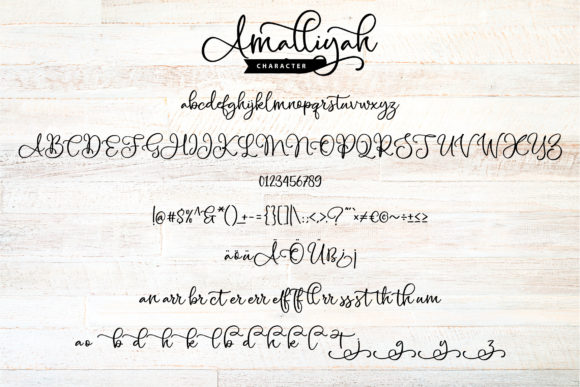 Amalliyah
CHARACTER
abcdefghijklmnopqrstuvwxyz
ABCDEFGHIJKLMNOPQRSTUVWXYZ
0123456789
!@#$%^&*()_+-={}[]|\:;<,>.?"'`×≠€©~÷±≤≥
äöüÄÖÜBij
an arr br ct er err eff ff ll rr ss st th th um
a o b d h k l b d h k l T j g y z